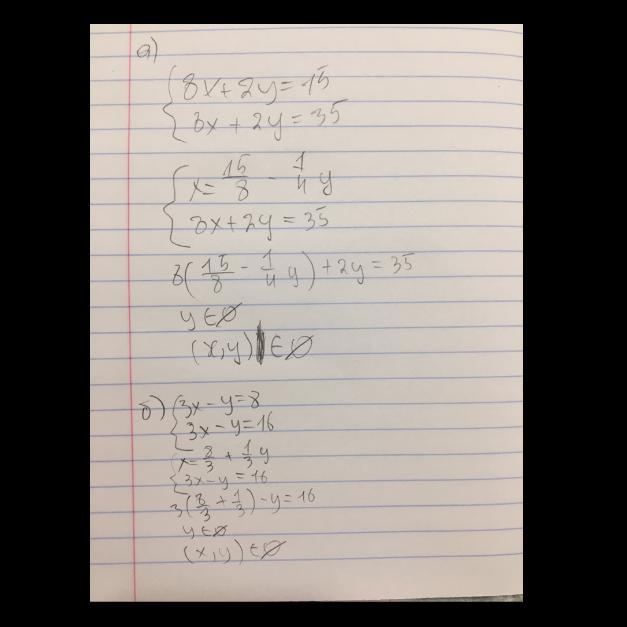 а)
8x+2y=15
8x+2y=35
x=15/8 - 1/4 y
8x+2y=35
8(15/8 - 1/4 y)+2y=35
y∈∅
(x,y)∈∅
б) 3x-y=8
3x-y=16
x=8/3 + 1/3 y
3x-y=16
3(8/3 + 1/3)-y=16
y∈∅
(x,y)∈∅